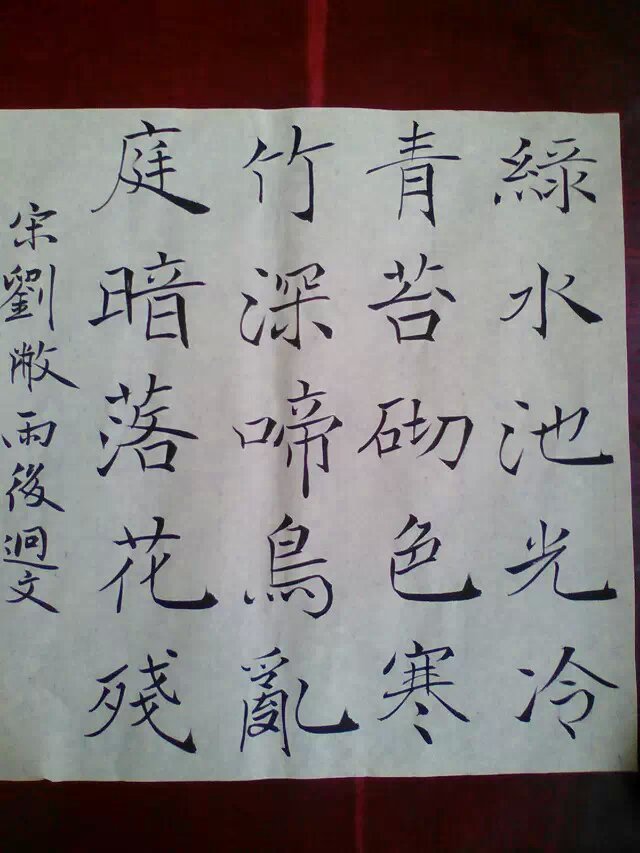 綠水池光冷
青苔砌色寒
竹深啼鳥亂
庭暗落花殘
宋劉敞雨後迴文